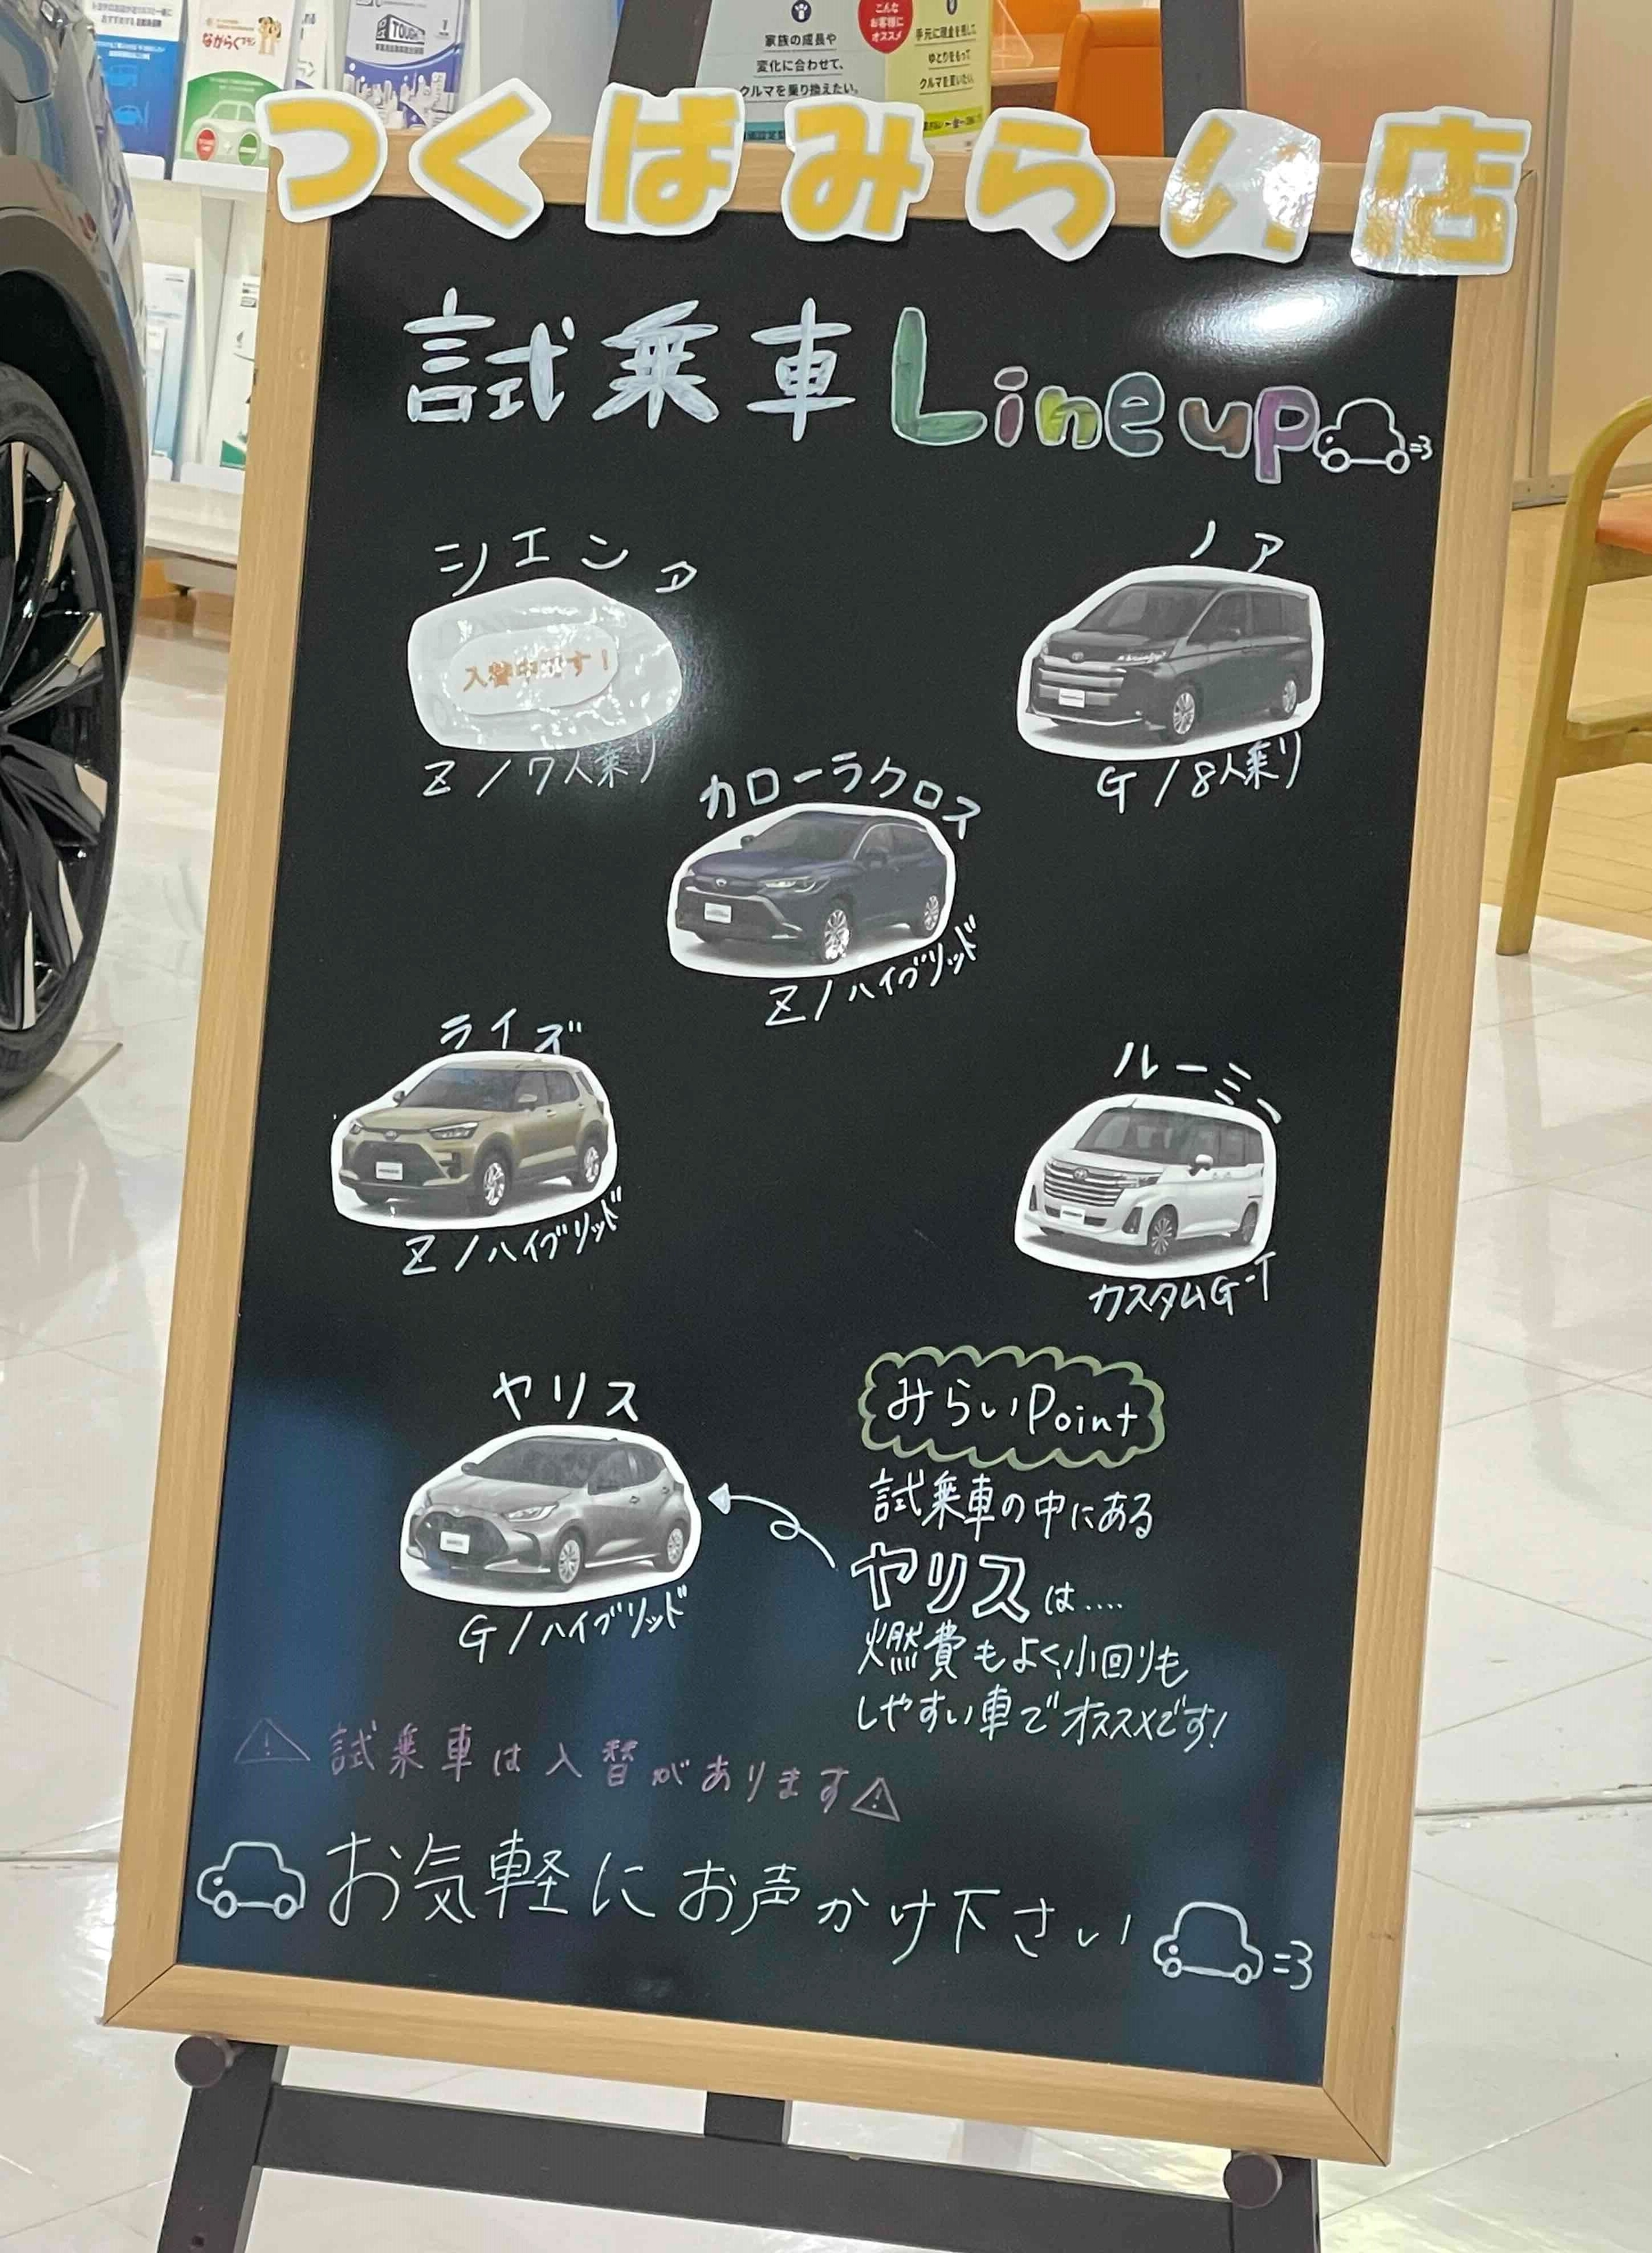 ながらくプラン
TOUGH
家族の成長や
変化に合わせて、
クルマを乗り換えたい。
こんな
お客様に
オススメ
手元に現金を残して
ゆとりをもって
クルマを買いたい。
つくばみらい店
試乗車Lineup
シエンタ
入替中です!
Z/7人乗り
ノア
G/8人乗り
カローラクロス
Z/ハイブリッド
ライズ
Z/ハイブリッド
ルーミー
カスタムG-T
ヤリス
G/ハイブリッド
みらいPoint
試乗車の中にある
ヤリスは....
燃費もよく、小回りも
しやすい車でオススメです!
試乗車は入替があります
お気軽にお声かけ下さい